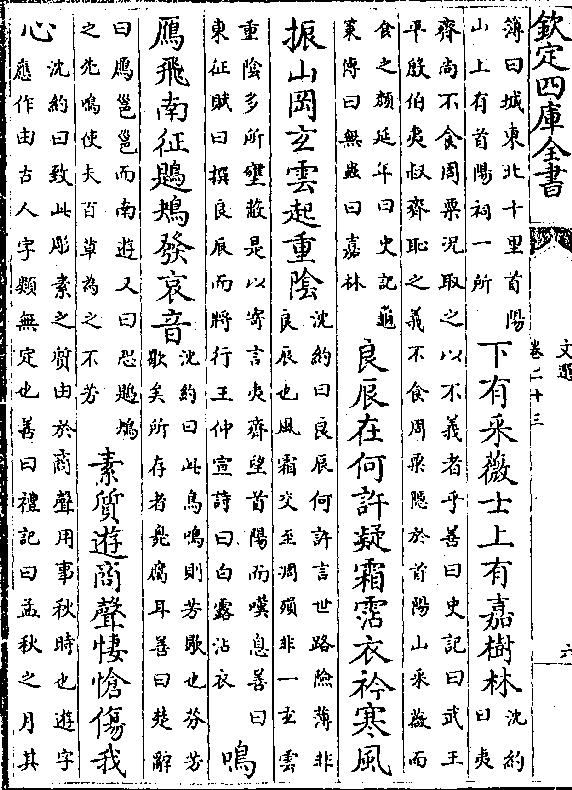 欽定四庫全書
文選
卷二十三
六
簿曰城東北十里首陽
山上有首陽祠一所
下有采薇士上有嘉樹林
沈約
曰夷
齊尚不食周粟況取之以不義者乎善曰史記曰武王
平殷伯夷叔齊恥之義不食周粟隱於首陽山采薇而
食之顔延年曰史記龜
策傳曰無蟲曰嘉林
良辰在何許凝霜霑衣衿寒風
振山岡玄雲起重陰
沈約曰良辰何許言世路險薄非
良辰也風霜交至凋殞非一玄雲
重陰多所壅蔽是以寄言夷齊望首陽而嘆息善曰
東征賦曰撰良辰而將行王仲宣詩曰白露沾衣
鳴
鴈飛南征鶗鴂發哀音
沈約曰此鳥鳴則芳歇也芬芳
歇矣所存者臰腐耳善曰楚辭
曰鴈邕邕而南遊又曰恐鶗鴂
之先鳴使夫百草為之不芳
素質遊商聲悽愴傷我
心
沈約曰致此彫素之質由於商聲用事秋時也遊字
應作由古人字類無定也善曰禮記曰孟秋之月其